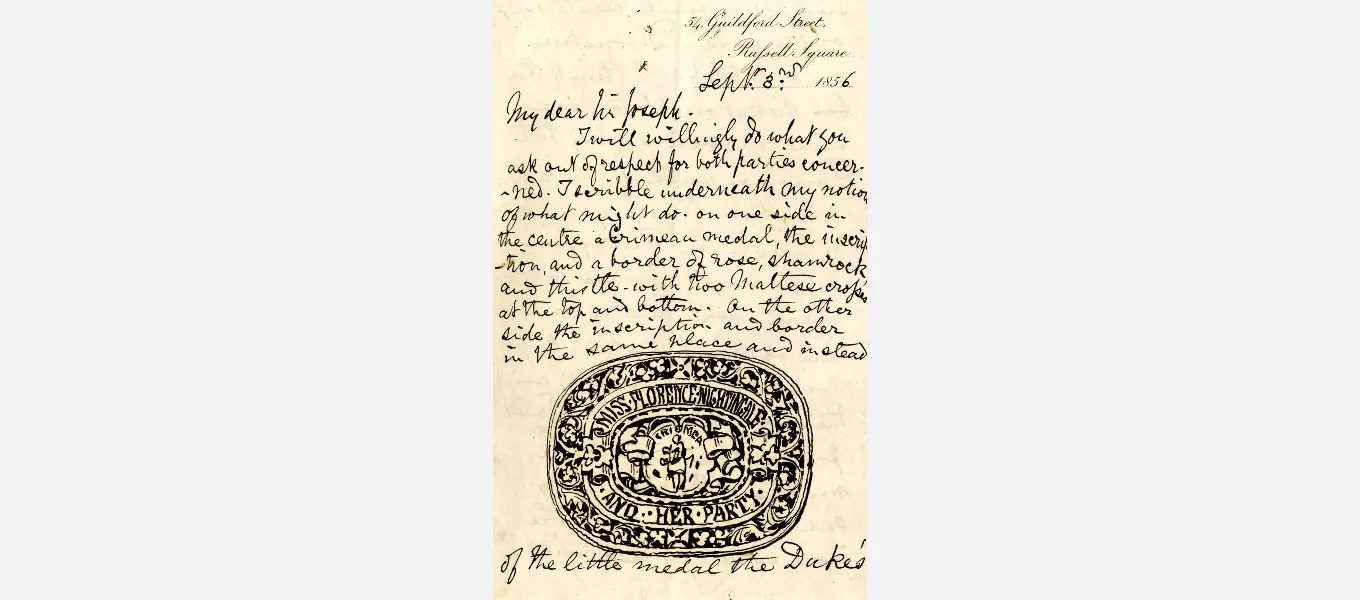 54, Guildford Street,
Russell Square
Septr. 3rd 1856
My dear Sir Joseph.
I will willingly do what you
ask out of respect for both parties concer-
-ned. I scribble underneath my notion
of what might do. on one side in
the centre a Crimean medal, the inscrip
-tion, and a border of rose, shamrock
and thistle - with two Maltese crosses
at the top and bottom. On the other
side the inscription and border
in the same place and instead
MISS · FLORENCE · NIGHTINGALE
CRIMEA
· AND · HER · PARTY ·
of the little medal the Duke's